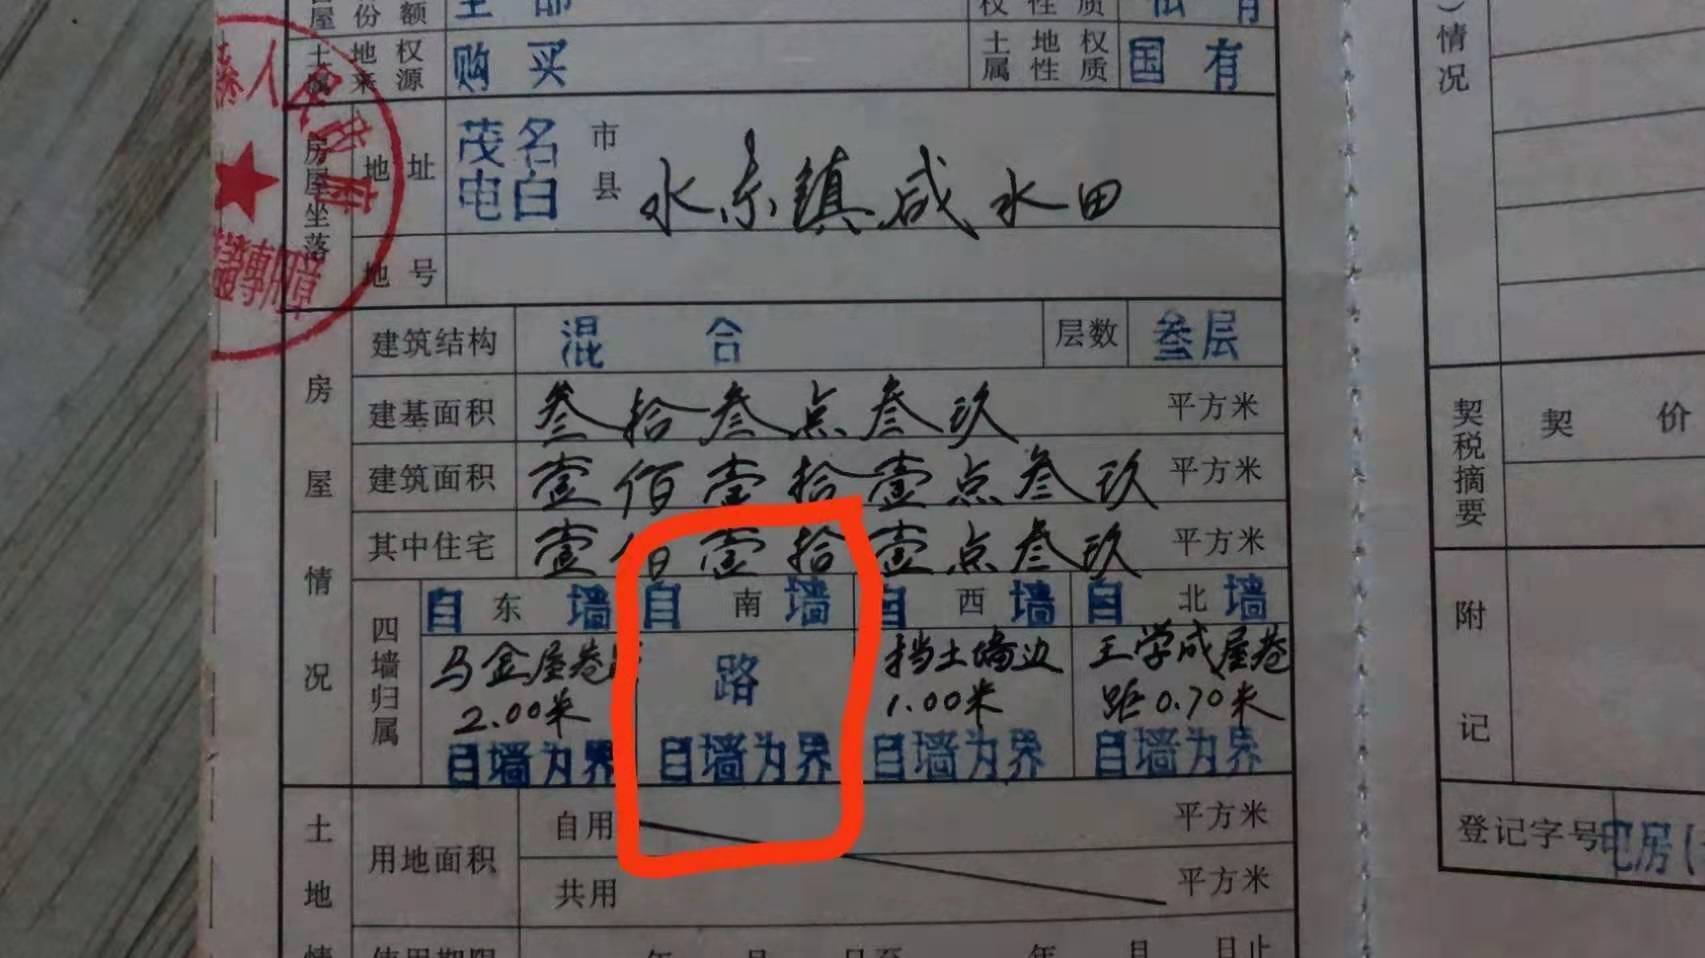 屋 份额 全部 权性质 私有
土地权属来源 购买 土地权属性质 国有
房屋坐落 地址 茂名市 电白县 水东镇咸水田
地号
房屋情况
建筑结构 混合 层数 叁层
建基面积 叁拾叁点叁玖 平方米
建筑面积 壹佰壹拾壹点叁玖 平方米
其中住宅 壹佰壹拾壹点叁玖 平方米
四墙归属
自东墙 自南墙 自西墙 自北墙
马金屋巷 路 挡土墙边 王学成屋巷
2.00米 1.00米 距0.70米
自墙为界 自墙为界 自墙为界 自墙为界
土地情
用地面积 自用 平方米
共用 平方米
使用期限 年 月 日至 年 月 日止
人民政府
專用章
情况
契税摘要 契 价
附记
登记字号 电房(